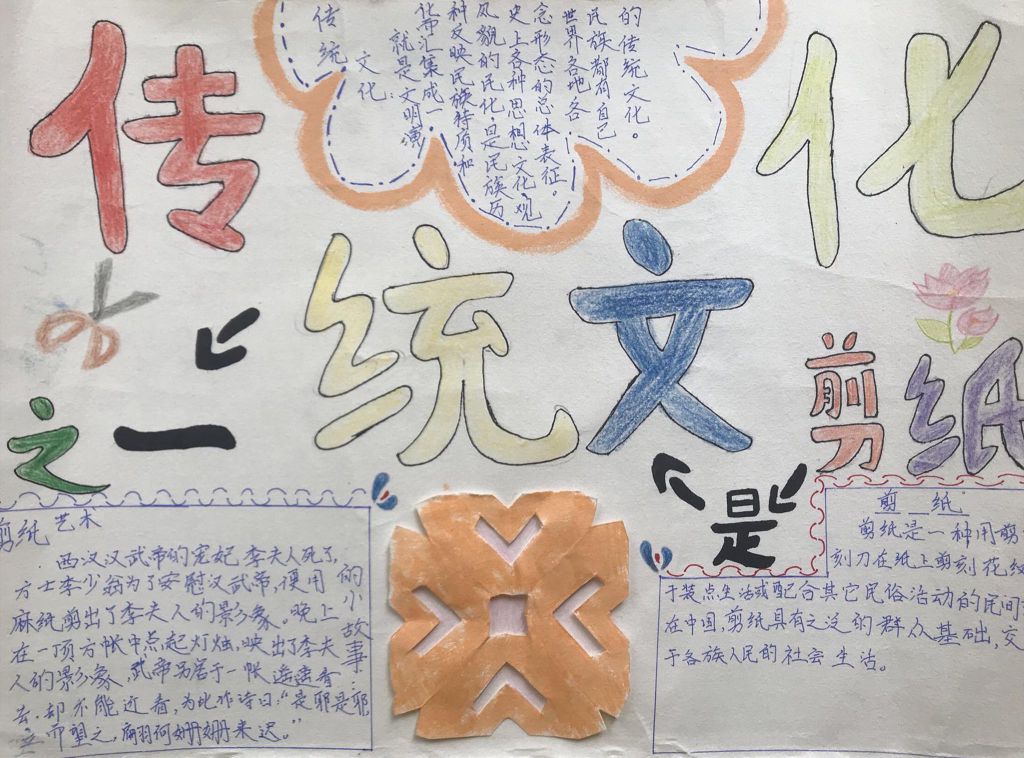 传统文化
传统
文化
就是文明演
化而汇集成一
种反映民族特质和
风貌的民化,是民族历
史上各种思想文化、观
念形态的总体表征。
世界各地各
民族都有自己
的传统文化。
之一
是
剪纸
剪纸艺术
的小故事
西汉汉武帝的宠妃李夫人死了,
方士李少翁为了安慰汉武帝,便用
麻纸剪出了李夫人的影象。晚上
在一顶方帐中点起灯烛,映出了李夫
人的影象,武帝另居于一帐遥遥看
去,却不能近看,为此作诗曰:“是耶是耶
而望之,翩何姗姗来迟。”
剪 纸
剪纸是一种用剪
刻刀在纸上剪刻花纹
于装点生活或配合其它民俗活动的民间
在中国,剪纸具有之泛的群众基础,交
于各族人民的社会生活。